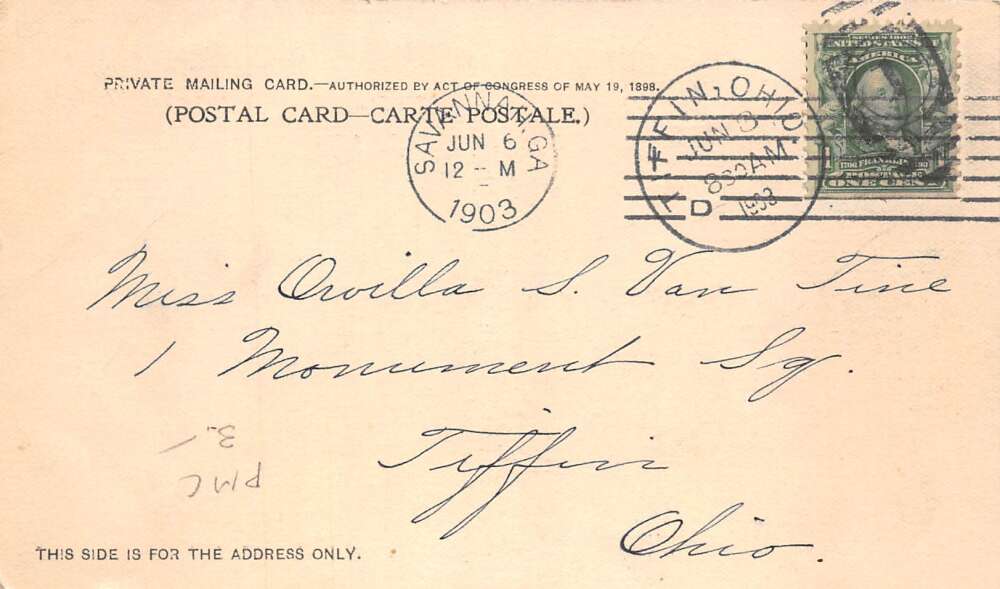 PRIVATE MAILING CARD.—AUTHORIZED BY ACT OF CONGRESS OF MAY 19, 1898.
(POSTAL CARD—CARTE POSTALE.)
SAVANNAH, GA
JUN 6
12 - M
1903
TIFFIN, OHIO
JUN 8
830 AM
1903
D
SERIES 1902
UNITED STATES
AMERICA
1706 FRANKLIN 1790
POSTAGE
1 ONE CENT
Miss Orvilla S. Van Tine
1 Monument Sq.
Tiffin
Ohio.
3.-
PMC
THIS SIDE IS FOR THE ADDRESS ONLY.